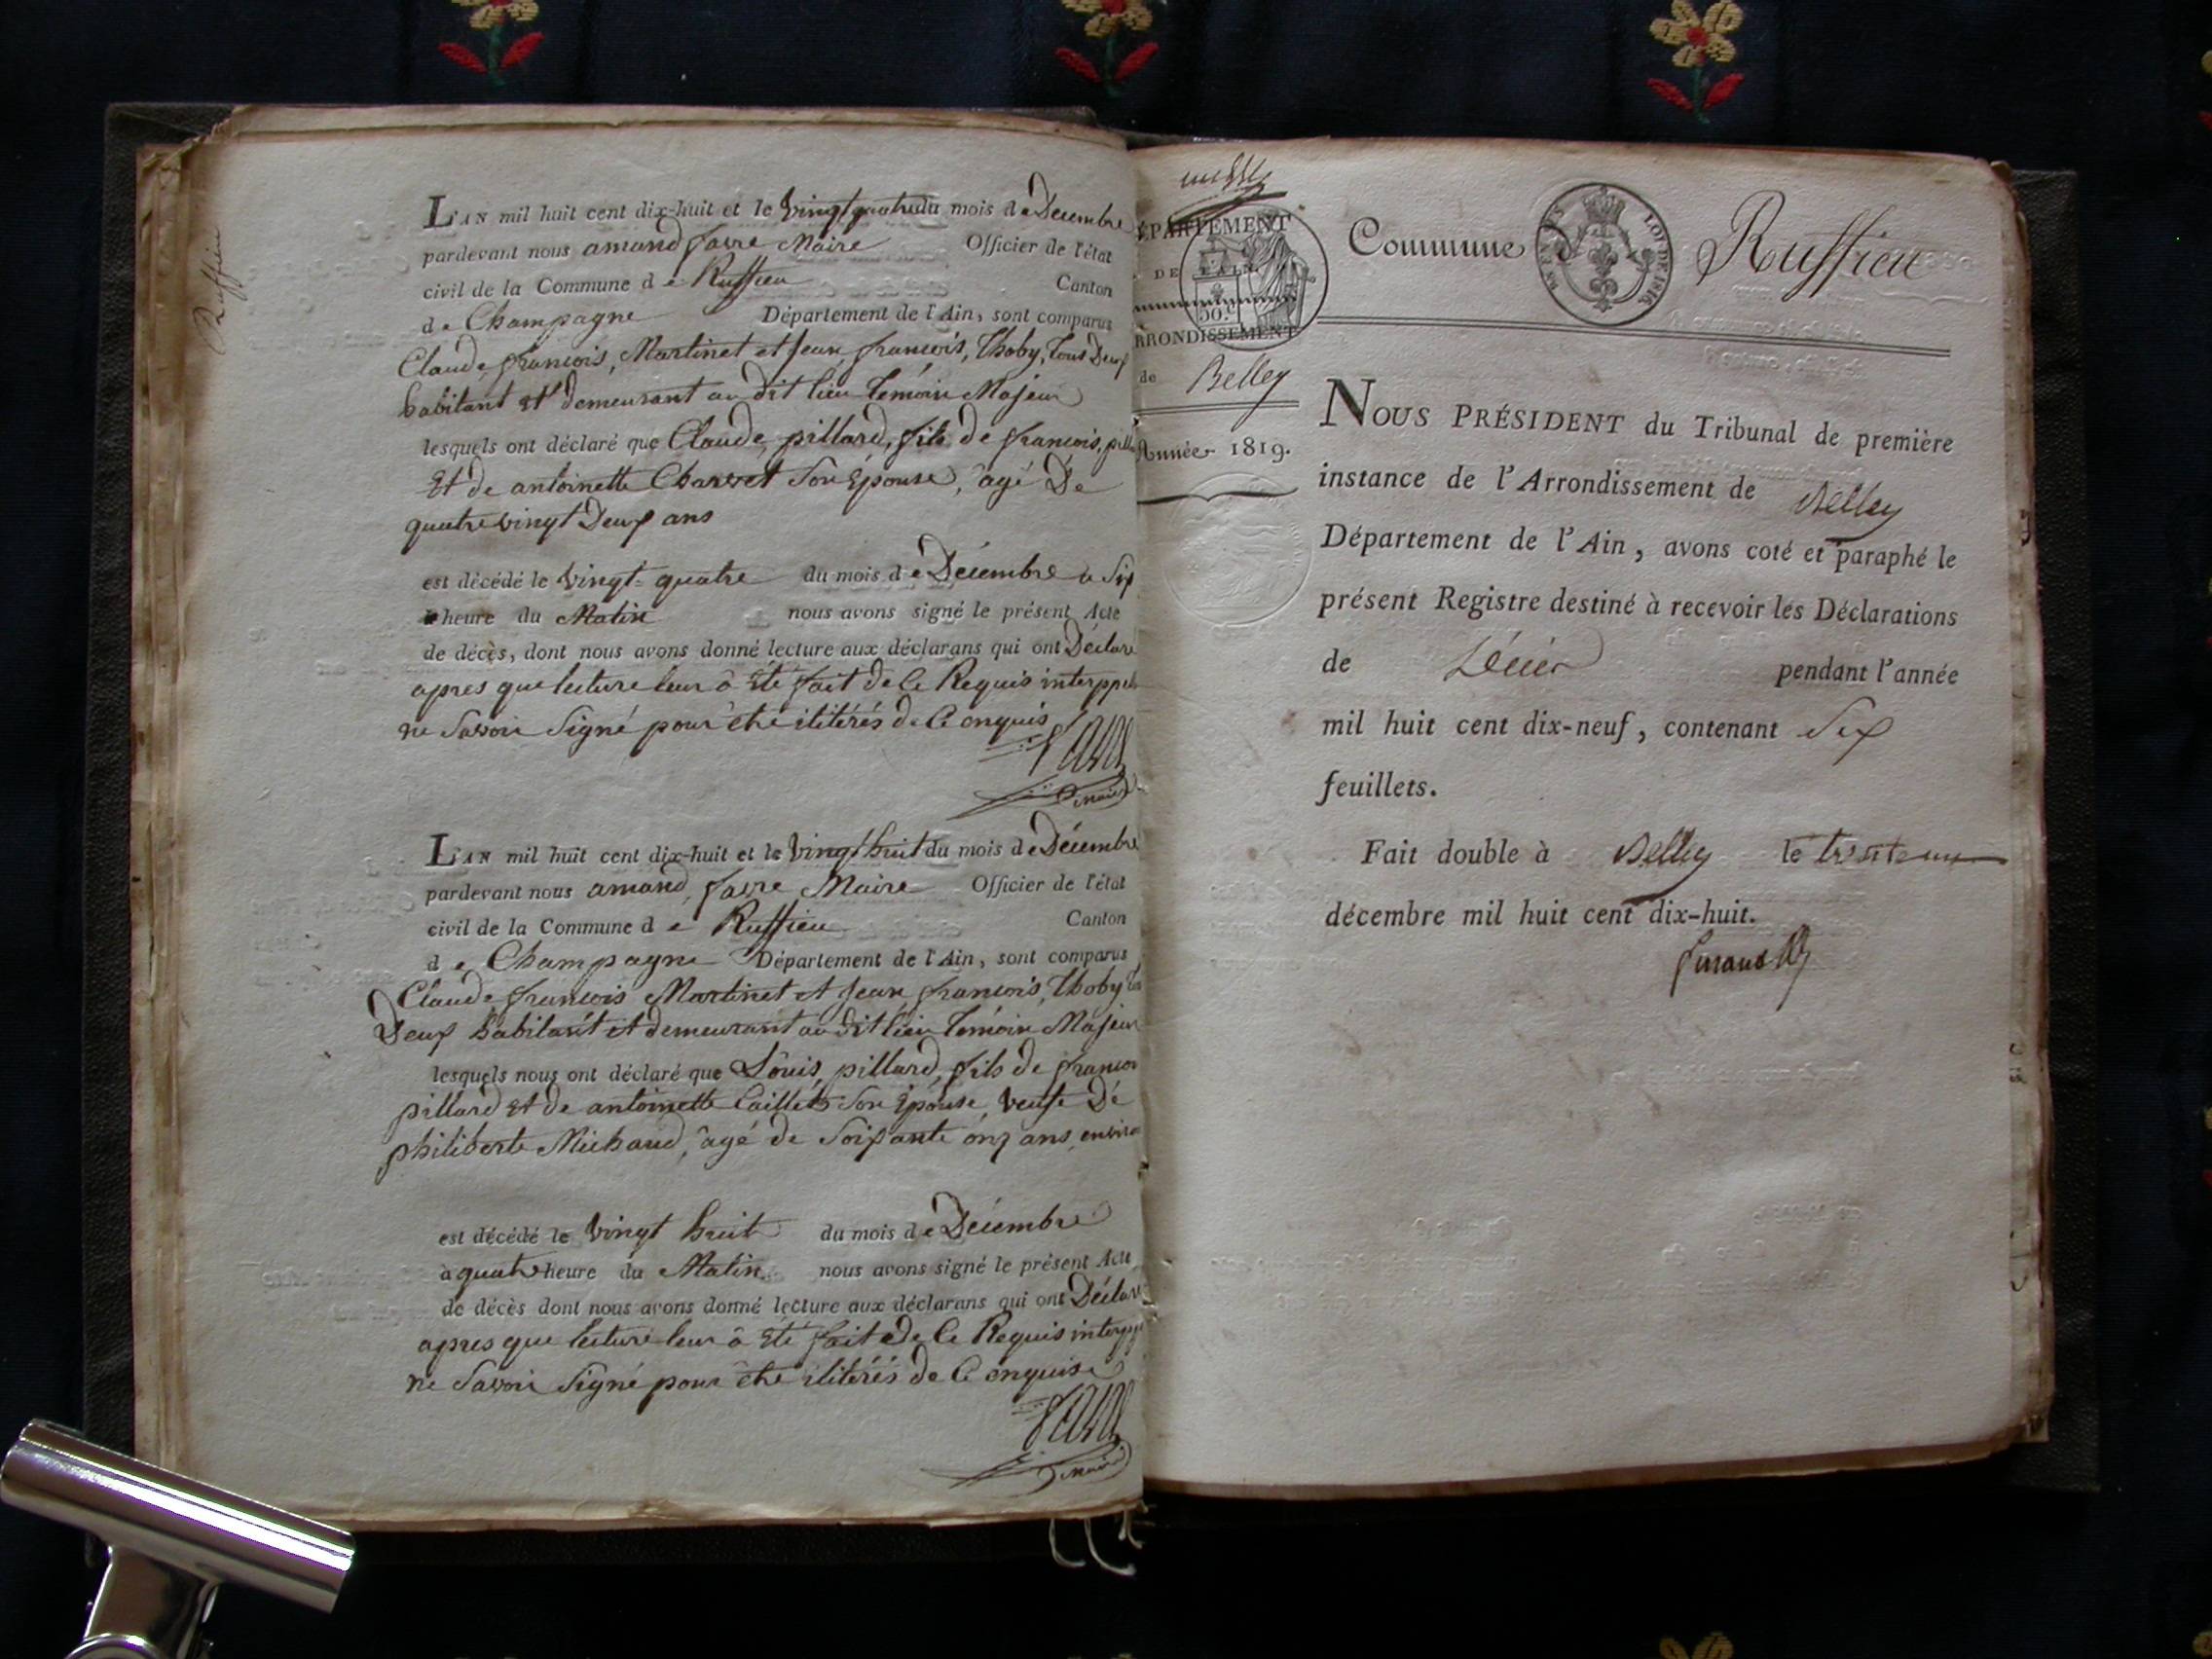 Ruffieu
L'AN mil huit cent dix-huit et le vingt quatre du mois de Decembre
pardevant nous amand favre Maire Officier de l'état
civil de la Commune de Ruffieu Canton
de Champagne Département de l'Ain, sont comparus
Claude françois, Martinet et Jean françois, Thoby, tous Deux
habitant et demeurant au dit lieu temoin Majeur
lesquels ont déclaré que Claude, pillard, fils de francois, pill
Et de antoinette Charvet Son Epouse, âgé De
quatre vingt Deux ans
est décédé le vingt-quatre du mois de Décembre a Six
heure du Matin nous avons signé le présent Acte
de décès, dont nous avons donné lecture aux déclarans qui ont Déclaré
apres que lecture leur à été fait de Ce Requis interppel
ne Savoir Signé pour être ilitérés de Ce enquis
favre
maire
L'AN mil huit cent dix-huit et le vingt huit du mois de Décembre
pardevant nous amand, favre Maire Officier de l'état
civil de la Commune de Ruffieu Canton
de Champagne Département de l'Ain, sont comparus
Claude françois Martinet et Jean françois, Thoby
Deux habitant et demeurant au dit lieu temoin Majeur
lesquels nous ont déclaré que Louis, pillard, fils de francoi
pillard Et de antoinette Caillet Son Epouse, veufe De
philiberte Michaud, âgé de Soixante onz ans, environ
est décédé le vingt huit du mois de Décembre
à quatre heure du Matin nous avons signé le présent Acte
de décès dont nous avons donné lecture aux déclarans qui ont Déclaré
apres que lecture leur à été fait de Ce Requis interpp
ne Savoir Signé pour être ilitérés de Ce enquise
favre
maire
ÉPARTEMENT
DE L'AIN.
50.c
RRONDISSEMENT
de Belley
Année 1819.
Commune de Ruffieu
LOI DE 1816.
NOUS PRÉSIDENT du Tribunal de première
instance de l'Arrondissement de Belley
Département de l'Ain, avons coté et paraphé le
présent Registre destiné à recevoir les Déclarations
de Décès pendant l'année
mil huit cent dix-neuf, contenant Six
feuillets.
Fait double à Belley le trente un
décembre mil huit cent dix-huit.